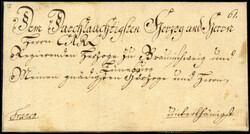 61.
Dem Durchlauchtigsten Herzog und Herrn
Herrn CARL
Regierenden Herzoge zu Braunschweig und
Lüneburg
Meinem gnädigsten Hertzoge und Herrn
Franco unterthänigst